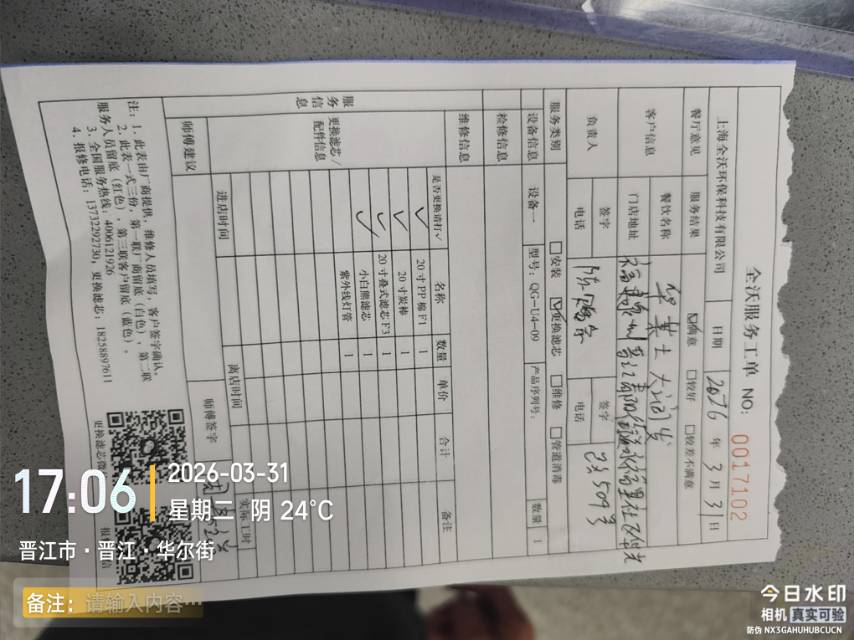 全沃服务工单 NO: 0017102
上海全沃环保科技有限公司 日期 2026年3月31日
餐厅意见 服务结果 ☑满意 □较好 □较差不满意
客户信息 餐饮名称 华莱士 大润发
门店地址
负责人 签字 签字
电话 电话
服务类别 □安装 ☑更换滤芯 □维修 □管道消毒
设备信息 设备一 型号: QG-U4-09 产品序列号: 数量 1
检修信息
维修信息
服务信息
更换滤芯/配件信息
是否更换请打✓ 名称 数量 单价 合计 备注
✓ 20寸PP棉F1 1
✓ 20寸炭棒 1
✓ 20寸叠式滤芯F3 1
✓ 小白熊滤芯 1
紫外线灯管 1
进店时间 离店时间 实际工时
师傅建议 师傅签字
注: 1. 此表由厂商提供, 维修人员填写, 客户签字确认。
2. 此表一式三份, 第一联厂商留底(白色), 第二联
服务人员留底(红色), 第三联客户留底(蓝色)。
3. 全国服务热线: 4006121926
4. 报修电话: 13732292730, 更换滤芯: 18258897611
17:06
2026-03-31
星期二 阴 24°C
晋江市·晋江·华尔街
备注: 请输入内容…
今日水印
相机 真实可验
防伪 NX3GAHUHUBCUCN